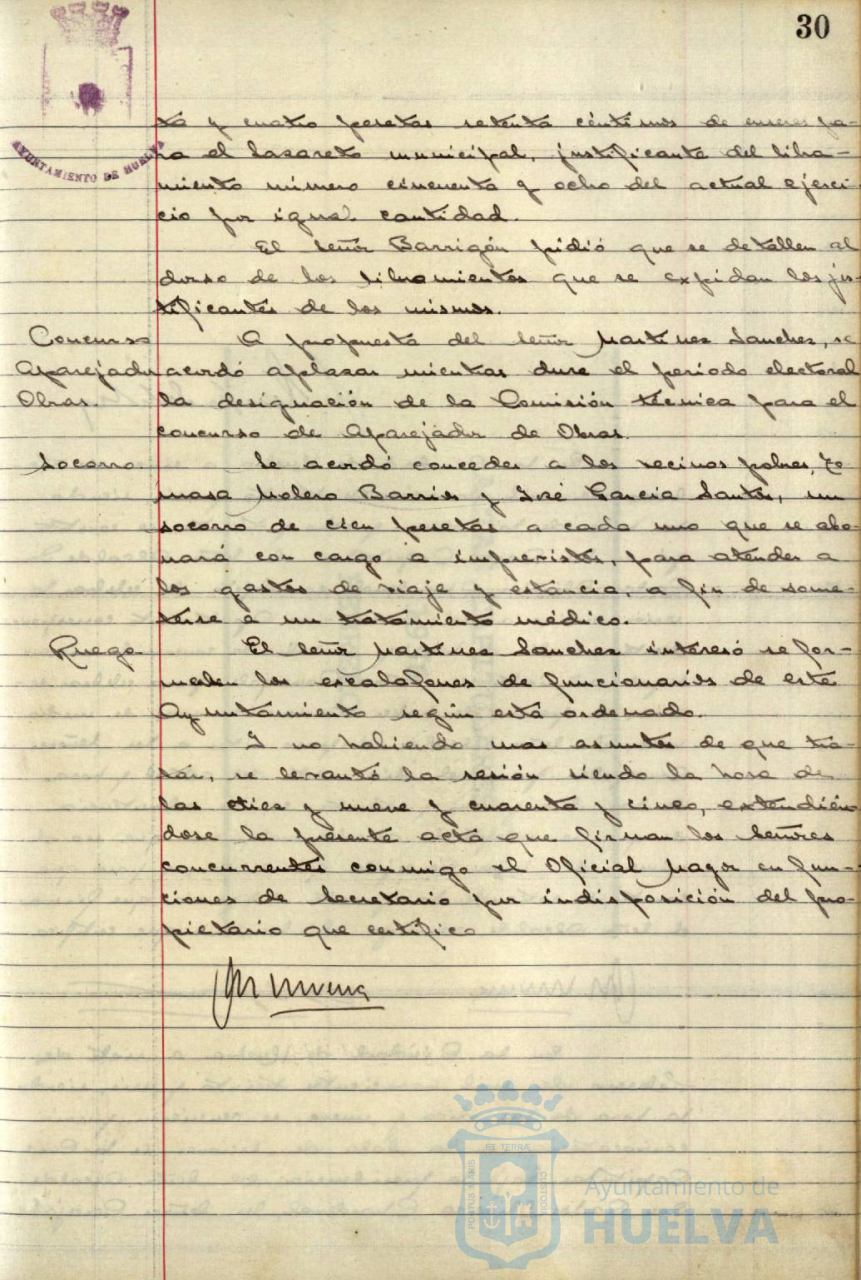 30
AYUNTAMIENTO DE HUELVA
ta y cuatro pesetas setenta céntimos de enseres pa-
ra el Lazareto municipal, justificante del libra-
miento número cincuenta y ocho del actual ejerci-
cio por igual cantidad.
El Señor Barrigón pidió que se detallen al
dorso de los libramientos que se expidan los jus-
tificantes de los mismos.
Concurso A propuesta del Señor Martinez Sanchez, se
Aparejador acordó aplazar mientras dure el período electoral
Obras. la designación de la Comisión técnica para el
concurso de Aparejador de Obras.
Socorro. Se acordó conceder a los vecinos pobres, To-
masa Molero Barrios y José García Santos, un
socorro de cien pesetas a cada uno que se abo-
nará con cargo a imprevistos, para atender a
los gastos de viaje y estancia, a fin de some-
terse a un tratamiento médico.
Ruego El Señor Martinez Sanchez interesó se for-
malen los escalafones de funcionarios de este
Ayuntamiento según está ordenado.
Y no habiendo mas asuntos de que tra-
tar, se levantó la sesión siendo la hora de
las diez y nueve y cuarenta y cinco, extendién
dose la presente acta que firman los Señores
concurrentes conmigo el Oficial Mayor en fun-
ciones de Secretario por indisposición del pro-
pietario que certifico
ET TERRÆ
PORTUS MARIS
CUSTODIA
Ayuntamiento de
HUELVA